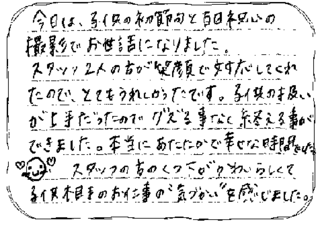 今日は、子供の初節句と百日祝いの
撮影でお世話になりました。
スタッフ2人の方が笑顔で対応してくれ
たので、とてもうれしかったです。子供の扱い
が上手だったので グズる事なく 終える事が
できました。本当にあたたかで幸せな時間でした
スタッフの方のくつ下がかわいらしくて
子供相手のお仕事の"気づかい"を感じました。